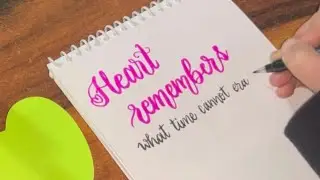 Heart
remembers
what time cannot era